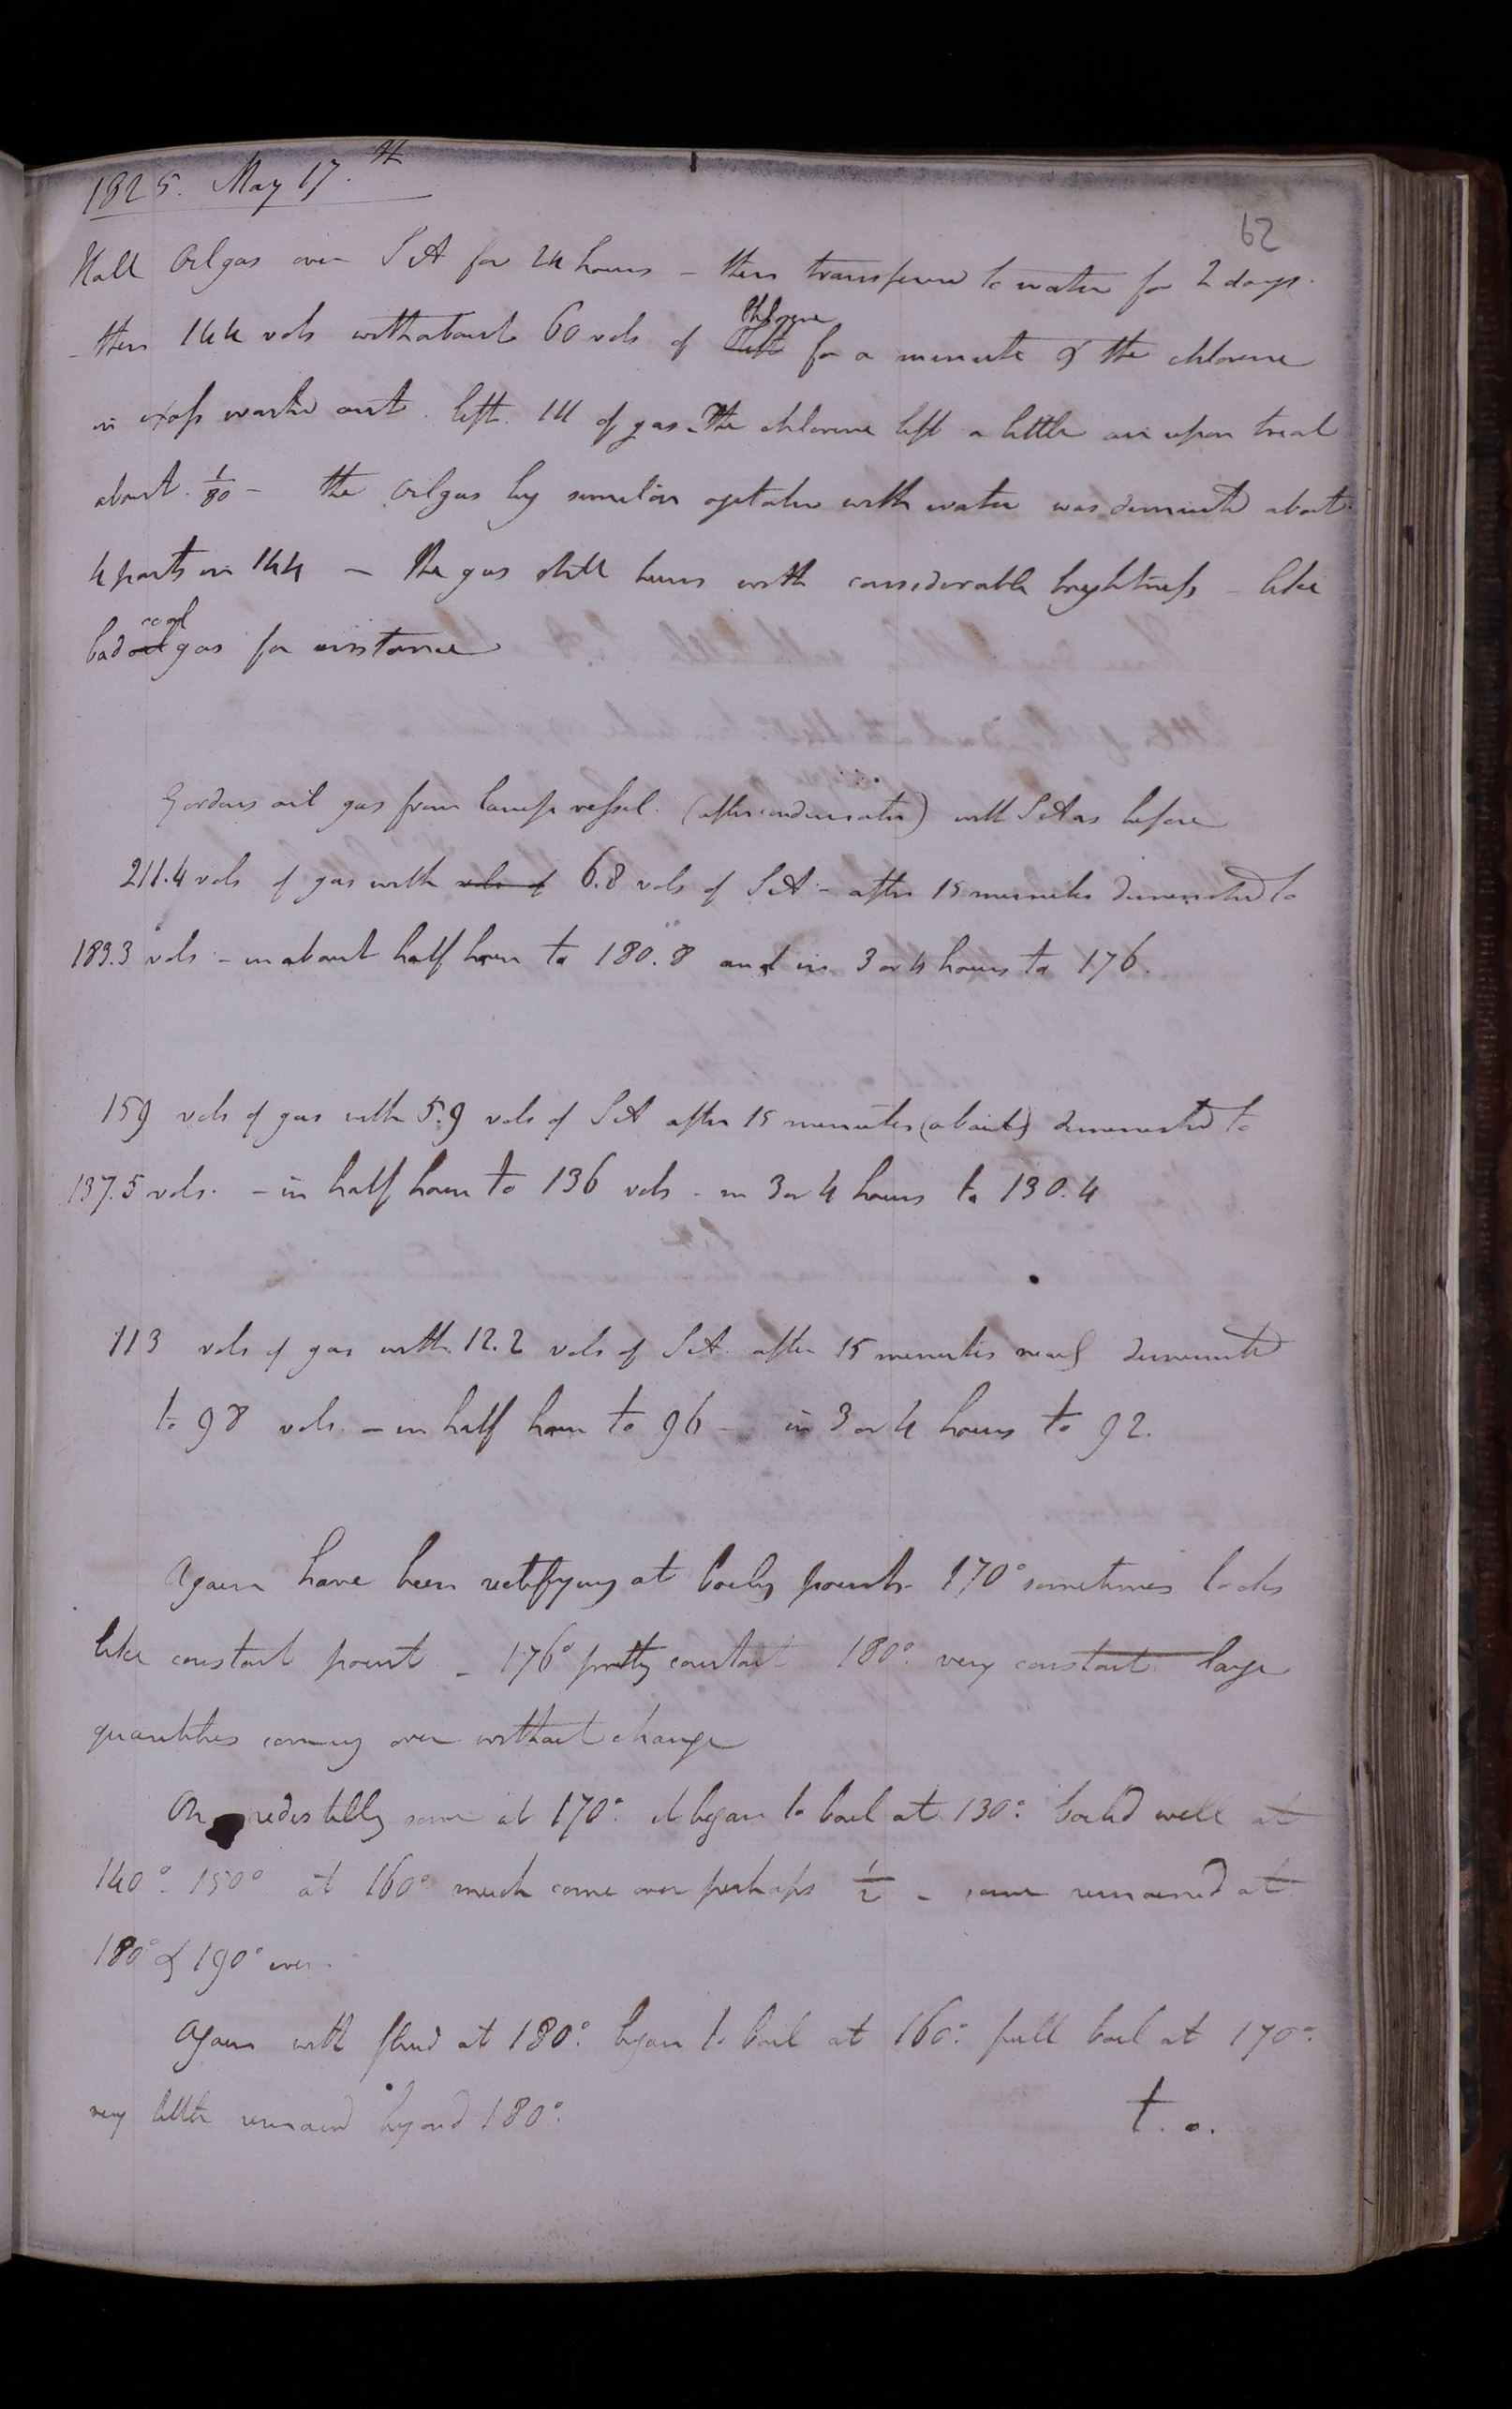 1825. May 17.th
62
Hall Oil gas over S A for 24 hours - then transferred to water for 2 days.
- then 144 vols with about 60 vols of Chlorine for a minute & the chlorine
in excess washed out. left. 111 of gas. The chlorine left a little air upon trial
about 1/80 - the oil gas by similar agitation with water was diminished about
4 parts in 144 - The gas still burns with considerable brightness - like
bad coal gas for instance
Gordons oil gas from lamp vessel. (after condensation) with S A as before
211.4 vols of gas with vols of 6.8 vols of S A - after 15 minutes diminished to
183.3 vols - in about half hour to 180.8 and in 3 or 4 hours to 176.
159 vols of gas with 5.9 vols of S A after 15 minutes (about) diminished to
137.5 vols. - in half hour to 136 vols - in 3 or 4 hours to 130.4
113 vols of gas with 12.2 vols of S A after 15 minutes nearly diminished
to 98 vols. - in half hour to 96 - in 3 or 4 hours to 92.
Again have been rectifying at boiling points - 170° sometimes looks
like constant point - 176° pretty constant 180° very constant large
quantities coming over without change
On redistilling some at 170° it began to boil at 130° boiled well at
140°. 150° at 160° much came over perhaps 1/2 - some remained at
180° & 190° even.
Again with fluid at 180° began to boil at 160° full boil at 170°
very little remained beyond 180°.
t. o.